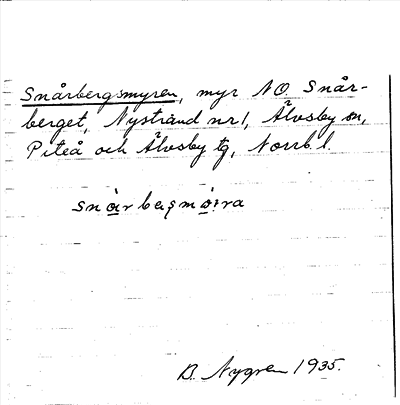 Snårbergsmyren, myr NO Snår-
berget, Nystrand nr 1, Älvsby sn,
Piteå och Älvsby tg, Norrb. l.
B. Nygren 1935.